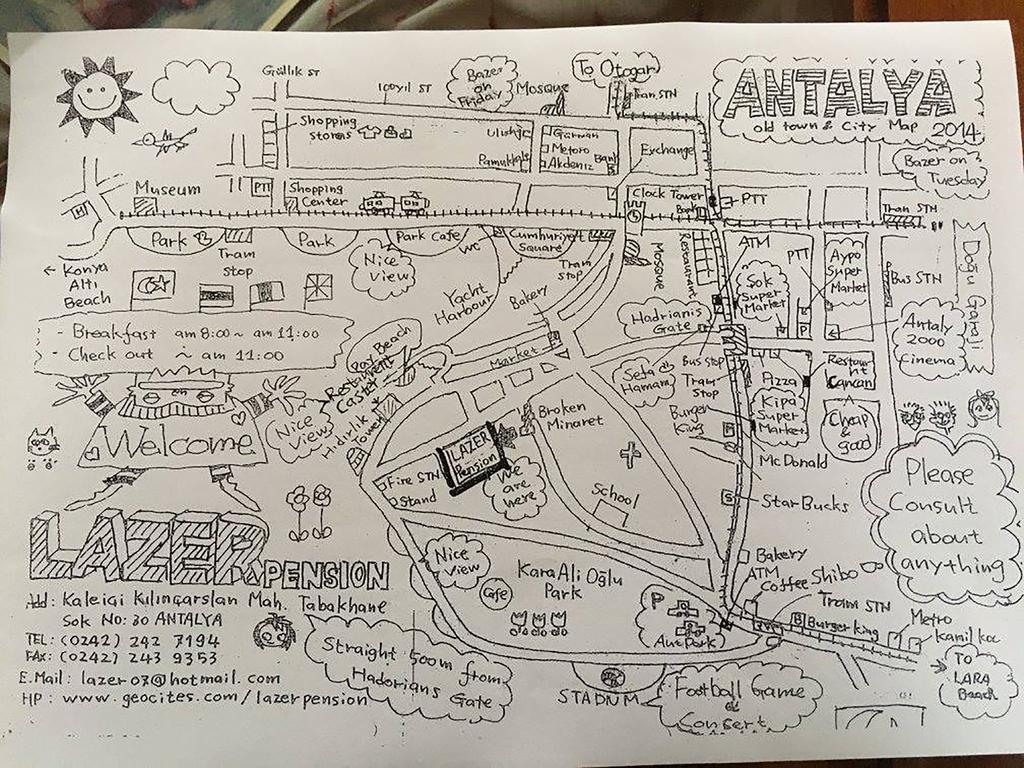 ANTALYA
old town & City Map 2014
Güllük ST
100yıl ST
Bazer
on
Friday
Mosque
To Otogar
Tran STN
Shopping
stores
Ulusoy
Pamukkale
Garwan
Metoro
Akdeniz
Bank
Exchange
Bazer on
Tuesday
Museum
PTT
Shopping
Center
Clock Tower
Bank
PTT
Tran STN
Park
Park
Park Cafe
WC
Cumhuriyett
Square
Tram
stop
Nice
View
Tram
stop
Mosque
Restaurant
ATM
PTT
Aypo
Super
Market
Sok
Super
Market
Bus STN
Doğu Garaji
← Konya
Altı
Beach
Yacht
Harbour
Bakery
Hadrianis
Gate
Antaly
2000
Cinema
- Breakfast am 8:00 ~ am 11:00
- Check out ~ am 11:00
Market
Bay Beach
Restaurant
Castel
Nice
View
Hidirlik
Tower
Sefa
Hamam
Bus stop
Tram
Stop
Pizza
Kipa
Super
Market
P
Restaurant
Cancan
Cheap
&
good
Welcome
Broken
Minaret
Burger
King
McDonald
LAZER
Pension
We
are
here
Fire STN
Stand
School
StarBucks
Please
Consult
about
anything
LAZER PENSION
Nice
View
Cafe
Kara Ali Oğlu
Park
Bakery
ATM
Coffee Shibo
Tram STN
Burger king
Metro
kamil koc
TO
LARA
Beach
P
Aut Park
Add: Kaleiçi Kılınçarslan Mah. Tabakhane
Sok No: 30 ANTALYA
TEL: (0242) 242 7194
FAX: (0242) 243 9353
E.Mail: lazer07@hotmail.com
HP: www.geocites.com/lazerpension
Straight 500m from
Hadorians
Gate
STADNUM
Football Game
&
Consert